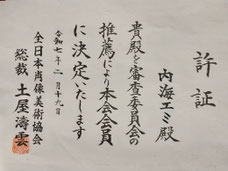 許証
内海エミ殿
貴殿を審査委員会の
推薦により本会会員
に決定いたします
令和七年二月十九日
全日本肖像美術協会
総裁 土屋濤雲